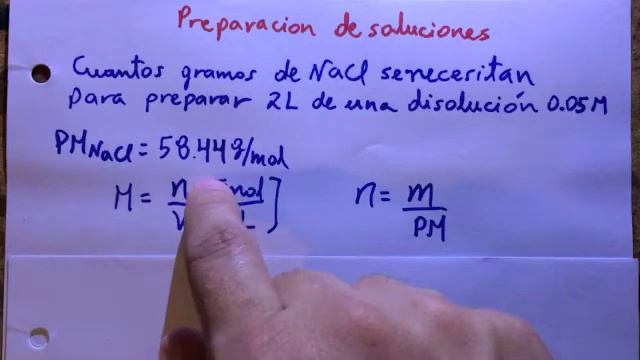 Preparacion de soluciones
Cuantos gramos de NaCl se necesitan
para preparar 2L de una disolución 0.05M
PM NaCl = 58.44 g/mol
M = n mol ] n = m
V L PM